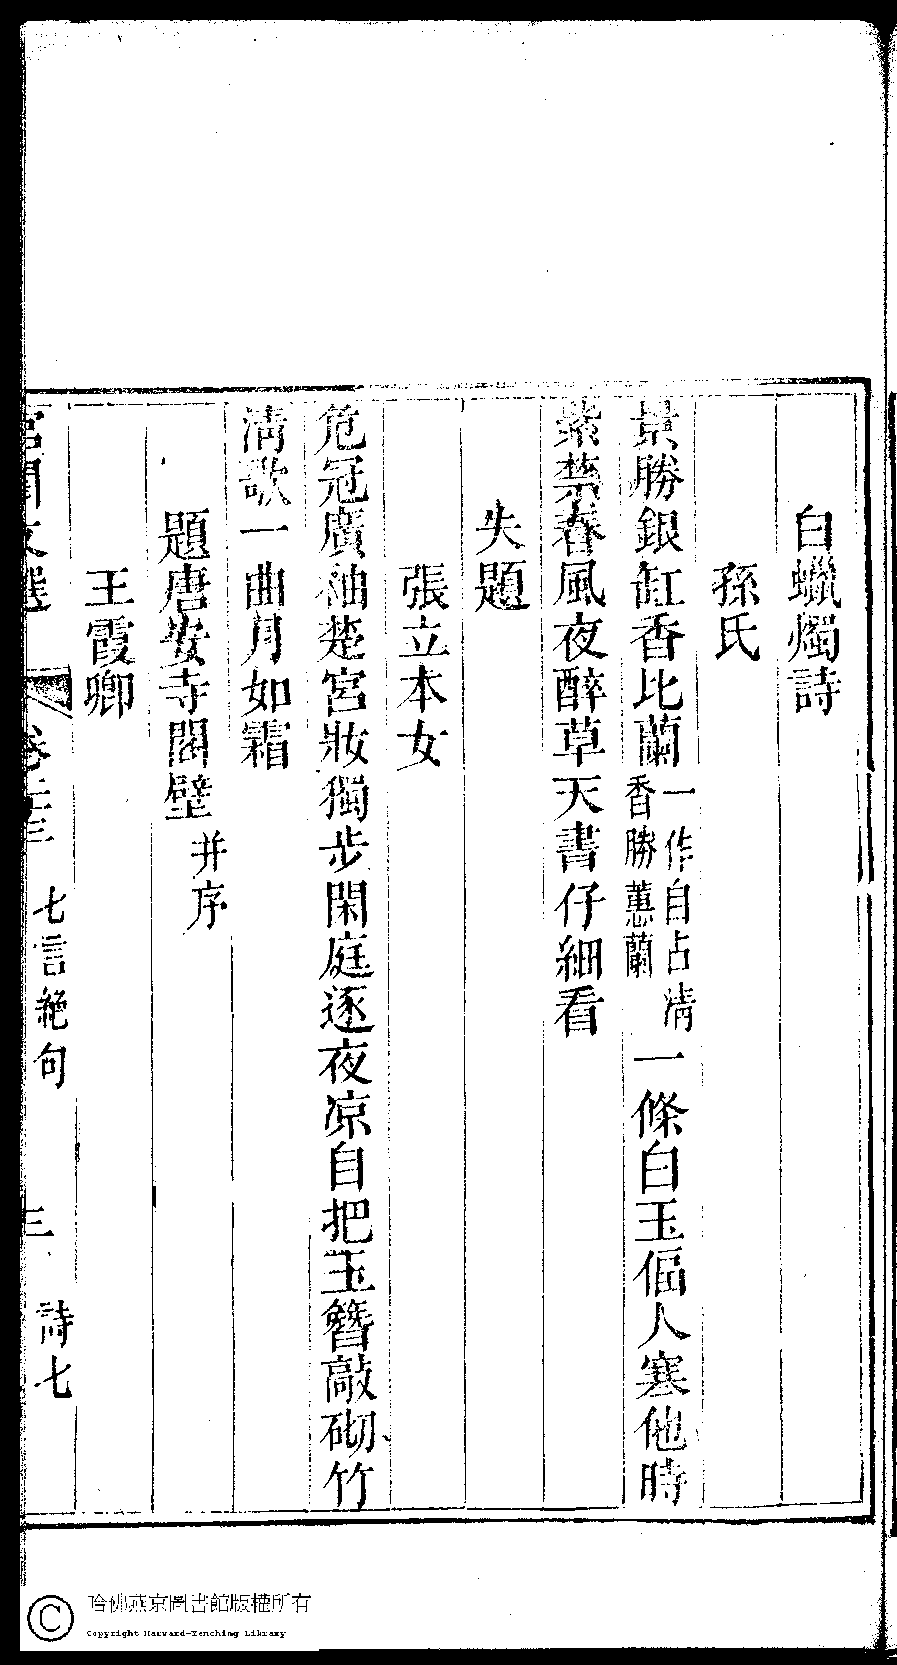 白蠟燭詩
孫氏
景勝銀缸香比蘭一作自占清香勝蕙蘭一條白玉偪人寒他時
紫禁春風夜醉草天書仔細看
失題
張立本女
危冠廣袖楚宮妝獨步閑庭逐夜凉自把玉簪敲砌竹
清歌一曲月如霜
題唐安寺閣壁并序
王霞卿
宮閨文選 卷二十三 七言絶句 三 詩七
哈佛燕京圖書館版權所有
Copyright Harvard-Yenching Library